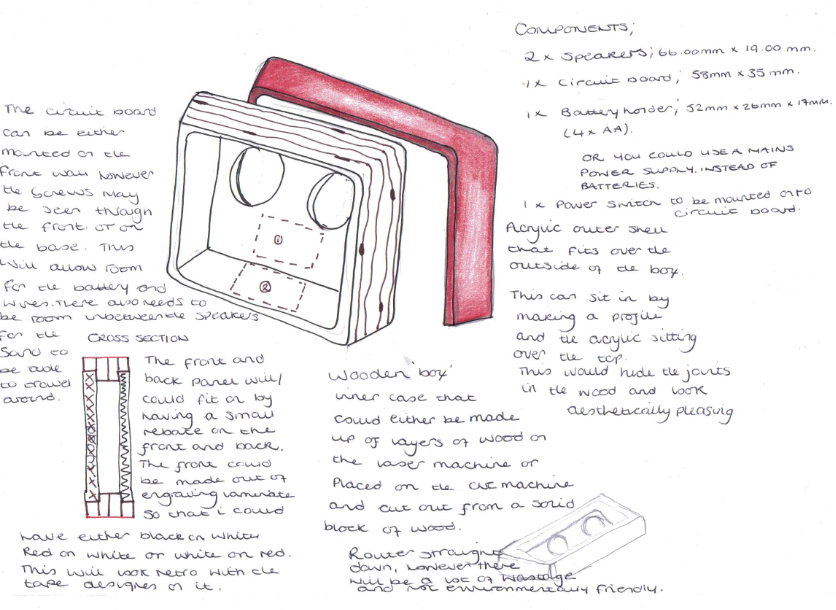 COMPONENTS;
2 x Speakers; 66.00mm x 19.00 mm.
1 x Circuit board; 58mm x 35 mm.
1 x Battery holder; 52mm x 26mm x 17mm.
(4 x AA).
OR YOU COULD USE A MAINS
POWER SUPPLY. INSTEAD OF
BATTERIES.
1 x Power Switch to be mounted onto
circuit board.
The circuit board
can be either
mounted on the
front wall however
the screws may
be seen through
the front or on
the base. This
will allow room
for the battery and
wires. There also needs to
be room inbetween the speakers
for the
Sand to
be able
to travel
around.
1
2
Acrylic outer shell
that fits over the
outside of the box.
This can sit in by
making a profile
and the acrylic sitting
over the top.
This would hide the joints
in the wood and look
aesthetically pleasing
CROSS SECTION
The front and
back panel will
could fit on by
having a small
rebate on the
front and back.
The front could
be made out of
engraving laminate
so that i could
have either black on white
Red on white or white on red.
This will look retro with the
tape designes on it.
Wooden 'box'
inner case that
could either be made
up of layers of wood on
the laser machine or
Placed on the cut machine
and cut out from a solid
block of wood.
Router straight
down, however there
will be a lot of wastage
and not environmentally friendly.